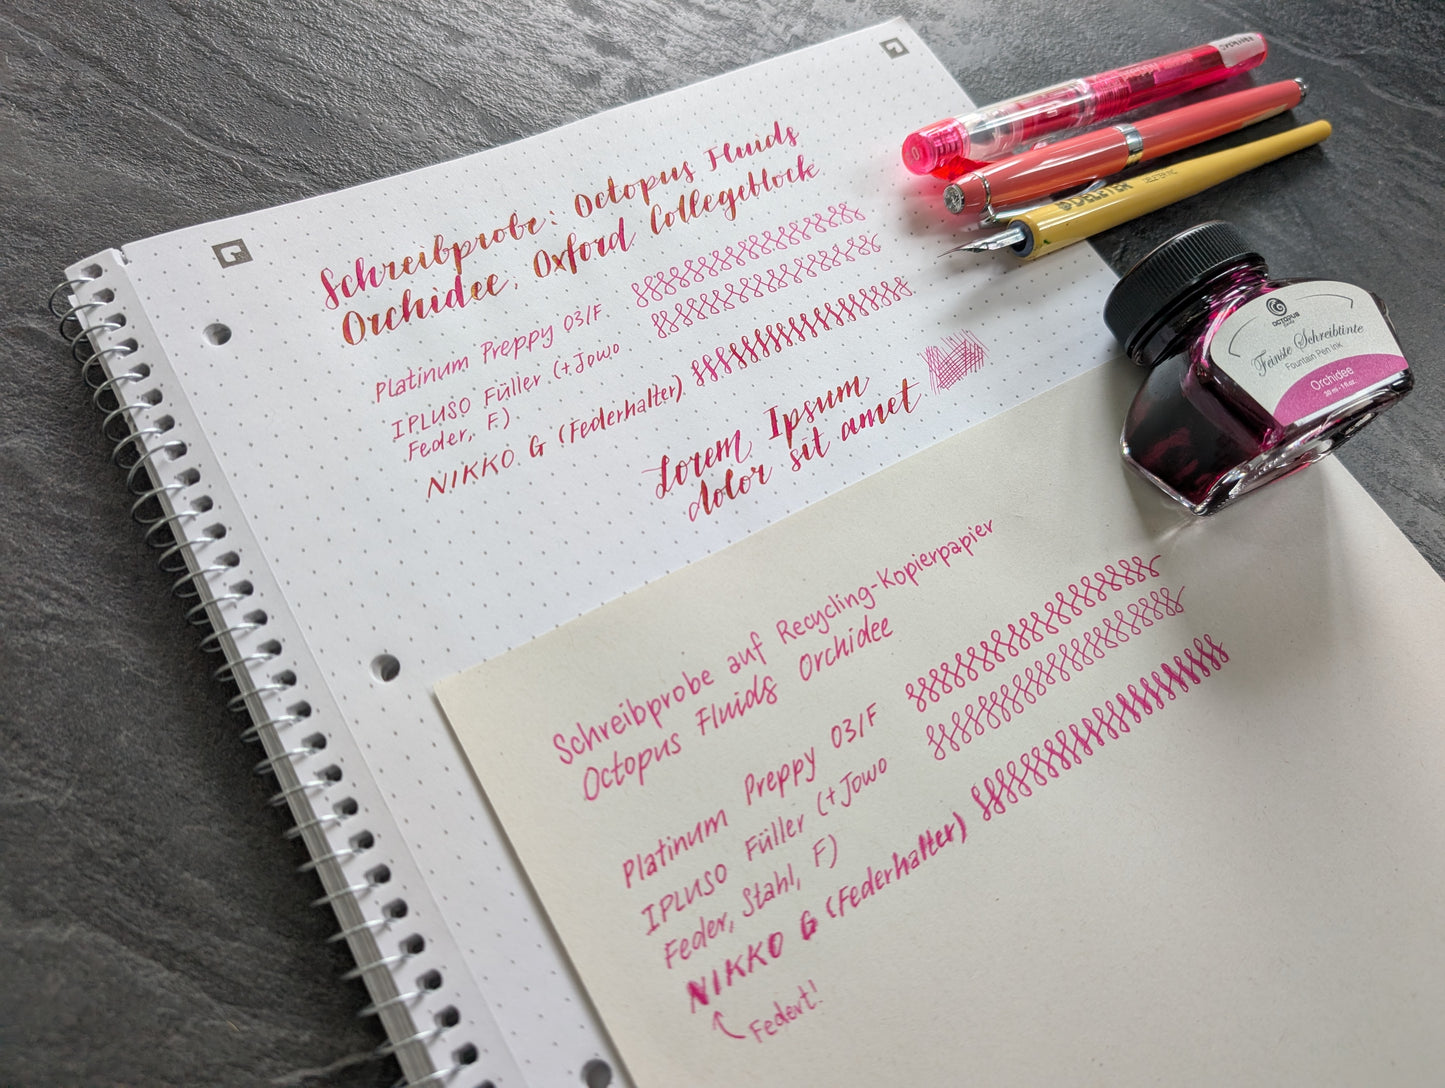 Schreibprobe: Octopus Fluids
Orchidee, Oxford Collegeblock
Platinum Preppy 03/F
IPLUSO Füller (+Jowo
Feder, F)
NIKKO G (Federhalter)
Lorem Ipsum
dolor sit amet
Schreibprobe auf Recycling-Kopierpapier
Octopus Fluids Orchidee
Platinum Preppy 03/F
IPLUSO Füller (+Jowo
Feder, Stahl, F)
NIKKO G (Federhalter)
Federt!
DELETER
OCTOPUS
Feinste Schreibtinte
Fountain Pen Ink
Orchidee
30 ml - 1 fl oz.